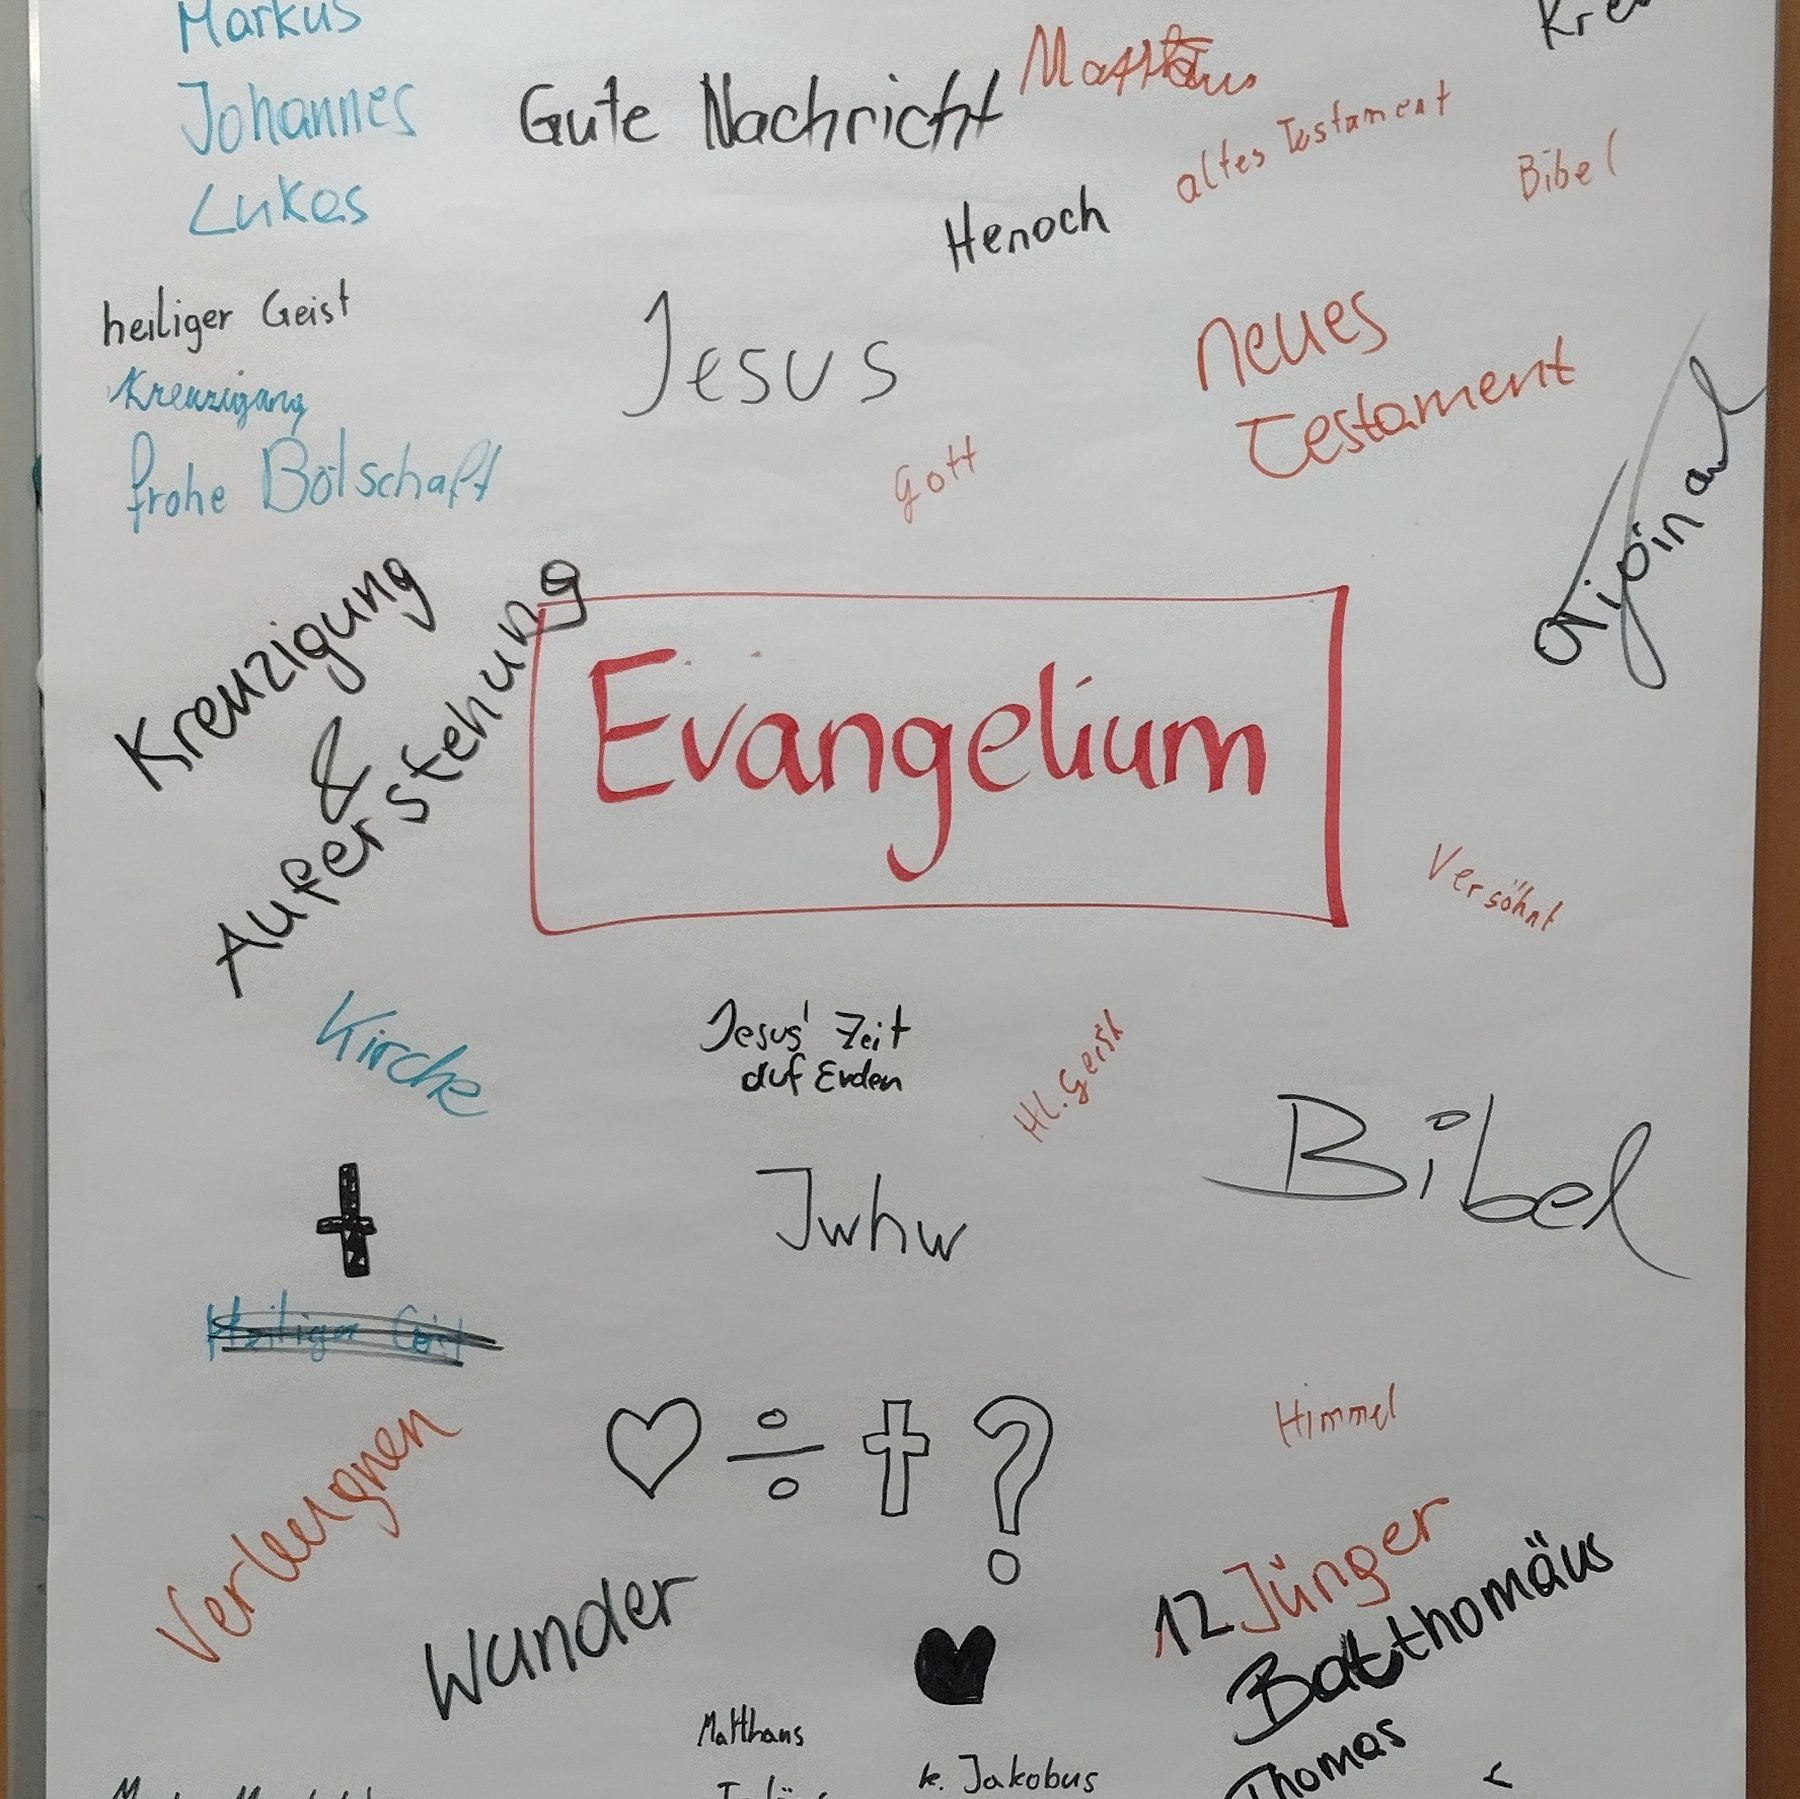 Markus
Johannes
Lukas
Gute Nachricht
Matthäus
altes Testament
Bibel
Henoch
heiliger Geist
Jesus
neues
Testament
Kreuzigung
frohe Botschaft
Gott
Kreuzigung
&
Auferstehung
Evangelium
Versöhnt
Kirche
Jesus' Zeit
auf Erden
Hl. Geist
Bibel
Jwhw
Heiliger Geist
Himmel
Verleugnen
Wunder
12 Jünger
Batthomäus
Thomas
Matthaus
k. Jakobus